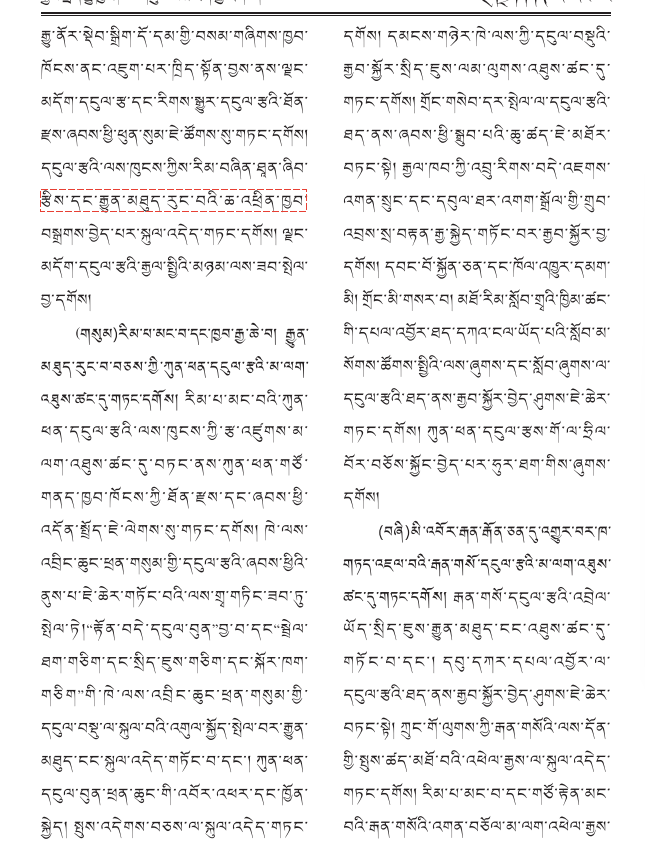 རྒྱུ་ནོར་སྡེབ་སྒྲིག་དོ་དམ་གྱི་བསམ་གཞིགས་ཁྱབ་
ཁོངས་ནང་འཇུག་པར་ཁྲིད་སྟོན་བྱས་ནས་ལྗང་
མདོག་དངུལ་རྩ་དང་རིགས་སྒྱུར་དངུལ་རྩའི་ཐོན་
རྫས་ཞབས་ཕྱི་ཕུན་སུམ་ཇེ་ཚོགས་སུ་གཏང་དགོས།
དངུལ་རྩའི་ལས་ཁུངས་ཀྱིས་རིམ་བཞིན་ཐྲན་ཞིབ་
རྩིས་དང་རྒྱུན་མཐུད་རུང་བའི་ཆ་འཕྲིན་ཁྱབ་
བསྒྲགས་བྱེད་པར་སྐུལ་འདེད་གཏང་དགོས། ལྗང་
མདོག་དངུལ་རྩའི་རྒྱལ་སྤྱིའི་མཉམ་ལས་ཟབ་སྤེལ་
བྱ་དགོས།
(གསུམ)རིམ་པ་མང་བ་དང་ཁྱབ་རྒྱ་ཆེ་བ། རྒྱུན་
མཐུད་རུང་བ་བཅས་ཀྱི་ཀུན་ཕན་དངུལ་རྩའི་མ་ལག་
འཐུས་ཚང་དུ་གཏང་དགོས། རིམ་པ་མང་བའི་ཀུན་
ཕན་དངུལ་རྩའི་ལས་ཁུངས་ཀྱི་རྩ་འཛུགས་མ་
ལག་འཐུས་ཚང་དུ་བཏང་ནས་ཀུན་ཕན་གཙོ་
གནད་ཁྱབ་ཁོངས་ཀྱི་ཐོན་རྫས་དང་ཞབས་ཕྱི་
འདོན་སྤྲོད་ཇེ་ལེགས་སུ་གཏང་དགོས། ཁེ་ལས་
འབྲིང་ཆུང་ཕྲན་གསུམ་གྱི་དངུལ་རྩའི་ཞབས་ཕྱིའི་
ནུས་པ་ཇེ་ཆེར་གཏོང་བའི་ལས་གྲྭ་གཏིང་ཟབ་ཏུ་
སྤེལ་ཏེ།“རྟོན་བདེ་དངུལ་བུན”བྱ་བ་དང“སྦྲེལ་
ཐག་གཅིག་དང་སྲིད་ཇུས་གཅིག་དང་སྐོར་ཁག་
གཅིག”གི་ཁེ་ལས་འབྲིང་ཆུང་ཕྲན་གསུམ་གྱི་
དངུལ་བསྡུ་ལ་སྐུལ་བའི་འགུལ་སྐྱོད་སྤེལ་བར་རྒྱུན་
མཐུད་ངང་སྐུལ་འདེད་གཏོང་བ་དང་། ཀུན་ཕན་
དངུལ་བུན་ཕྲན་ཆུང་གི་འབོར་འཕར་དང་ཁྱོན་
སྐྱེད། སྤུས་འདེགས་བཅས་ལ་སྐུལ་འདེད་གཏང་
དགོས། དམངས་གཉེར་ཁེ་ལས་ཀྱི་དངུལ་བསྡུའི་
རྒྱབ་སྐྱོར་སྲིད་ཇུས་ལམ་ལུགས་འཐུས་ཚང་དུ་
གཏང་དགོས། གྲོང་གསེབ་དར་སྤེལ་ལ་དངུལ་རྩའི་
ཐད་ནས་ཞབས་ཕྱི་སྒྲུབ་པའི་ཆུ་ཚད་ཇེ་མཐོར་
བཏང་སྟེ། རྒྱལ་ཁབ་ཀྱི་འབྲུ་རིགས་བདེ་འཇགས་
འགན་སྲུང་དང་དབུལ་ཐར་འགག་སྒྲོལ་གྱི་གྲུབ་
འབྲས་སྲ་བརྟན་རྒྱ་སྐྱེད་གཏོང་བར་རྒྱབ་སྐྱོར་བྱ་
དགོས། དབང་པོ་སྐྱོན་ཅན་དང་ཁོལ་འཁྱུར་དམག་
མི། གྲོང་མི་གསར་བ། མཐོ་རིམ་སློབ་གྲྭའི་ཁྱིམ་ཚང་
གི་དཔལ་འབྱོར་ཐད་དཀའ་ངལ་ཡོད་པའི་སློབ་མ་
སོགས་ཚོགས་སྤྱིའི་ལས་ཞུགས་དང་སློབ་ཞུགས་ལ་
དངུལ་རྩའི་ཐད་ནས་རྒྱབ་སྐྱོར་བྱེད་ཤུགས་ཇེ་ཆེར་
གཏང་དགོས། ཀུན་ཕན་དངུལ་རྩས་གོ་ལ་ཧྲིལ་
བོར་བཅོས་སྐྱོང་བྱེད་པར་ཧུར་ཐག་གིས་ཞུགས་
དགོས།
(བཞི)མི་འབོར་རྒན་རྒོན་ཅན་དུ་འགྱུར་བར་ཁ་
གཏད་འཇལ་བའི་རྒན་གསོ་དངུལ་རྩའི་མ་ལག་འཐུས་
ཚང་དུ་གཏང་དགོས། རྒན་གསོ་དངུལ་རྩའི་འབྲེལ་
ཡོད་སྲིད་ཇུས་རྒྱུན་མཐུད་ངང་འཐུས་ཚང་དུ་
གཏོང་བ་དང་། དབུ་དཀར་དཔལ་འབྱོར་ལ་
དངུལ་རྩའི་ཐད་ནས་རྒྱབ་སྐྱོར་བྱེད་ཤུགས་ཇེ་ཆེར་
བཏང་སྟེ། ཀྲུང་གོ་ལུགས་ཀྱི་རྒན་གསོའི་ལས་དོན་
གྱི་སྤུས་ཚད་མཐོ་བའི་འཕེལ་རྒྱས་ལ་སྐུལ་འདེད་
གཏང་དགོས། རིམ་པ་མང་བ་དང་གཙོ་རྟེན་མང་
བའི་རྒན་གསོའི་འགན་བཅོལ་མ་ལག་འཕེལ་རྒྱས་